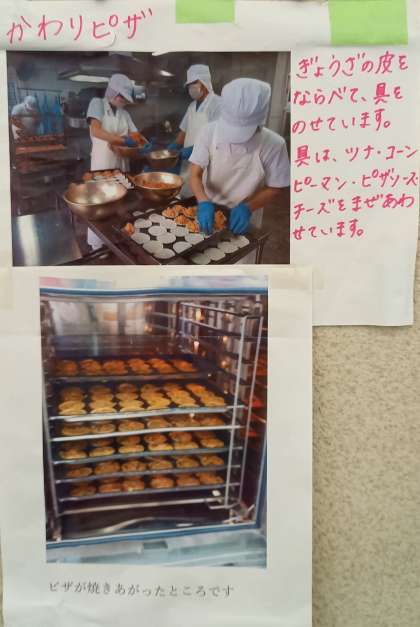 かわりピザ
ぎょうざの皮を
ならべて、具を
のせています。
具は、ツナ・コーン
ピーマン・ピザソース・
チーズをまぜあわ
せています。
ピザが焼きあがったところです